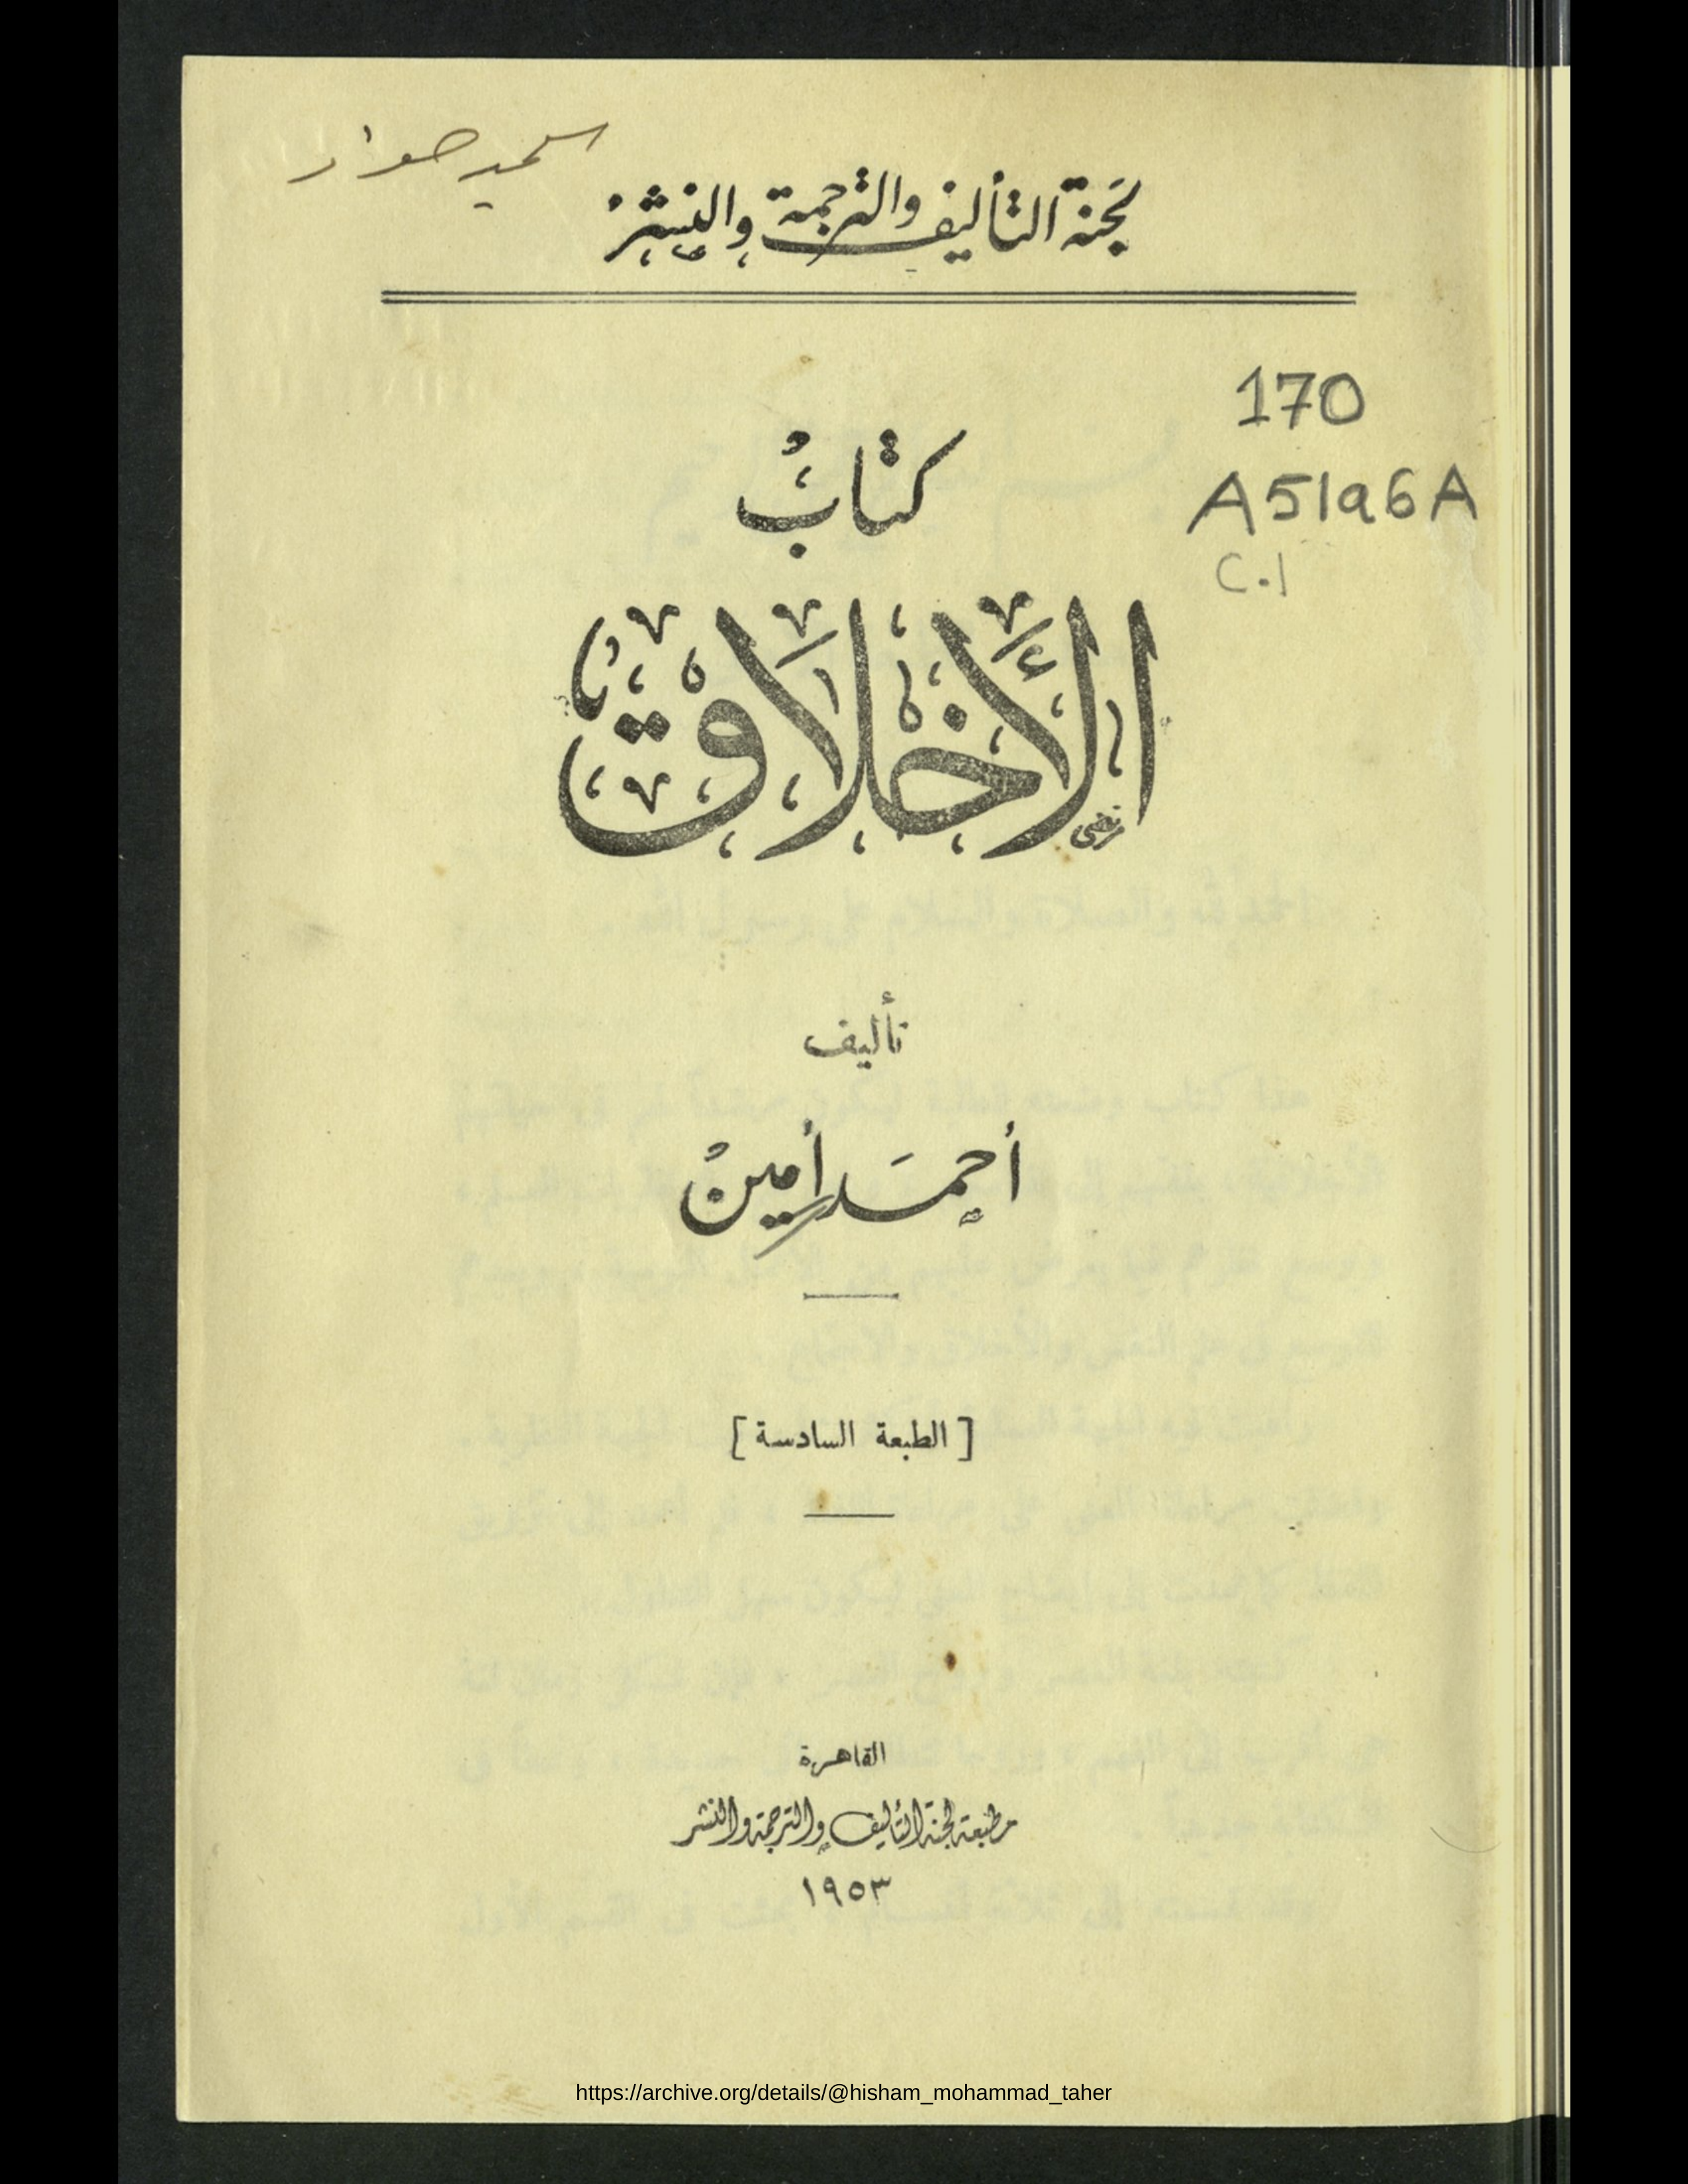 لجنة التأليف والترجمة والنشر
170
A5196A
C.1
كتاب
الأخلاق
تأليف
أحمد أمين
[ الطبعة السادسة ]
القاهرة
مطبعة لجنة التأليف والترجمة والنشر
١٩٥٣
https://archive.org/details/@hisham_mohammad_taher